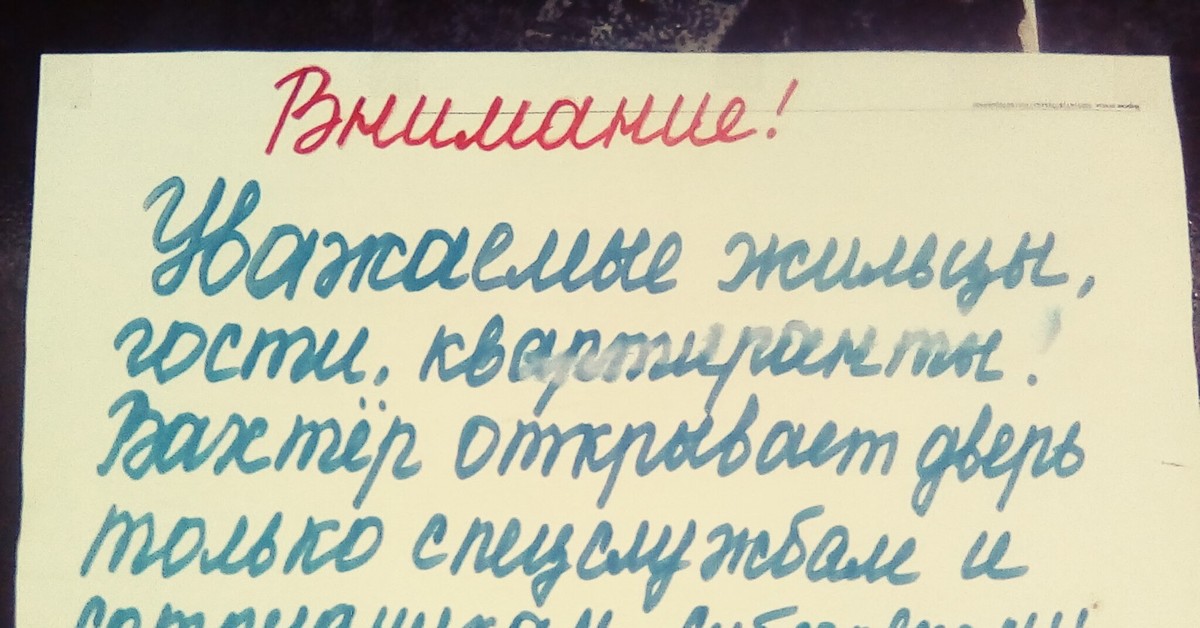 Внимание!
Уважаемые жильцы,
гости, квартиранты!
Вахтёр открывает дверь
только спецслужбам и
сотрудникам